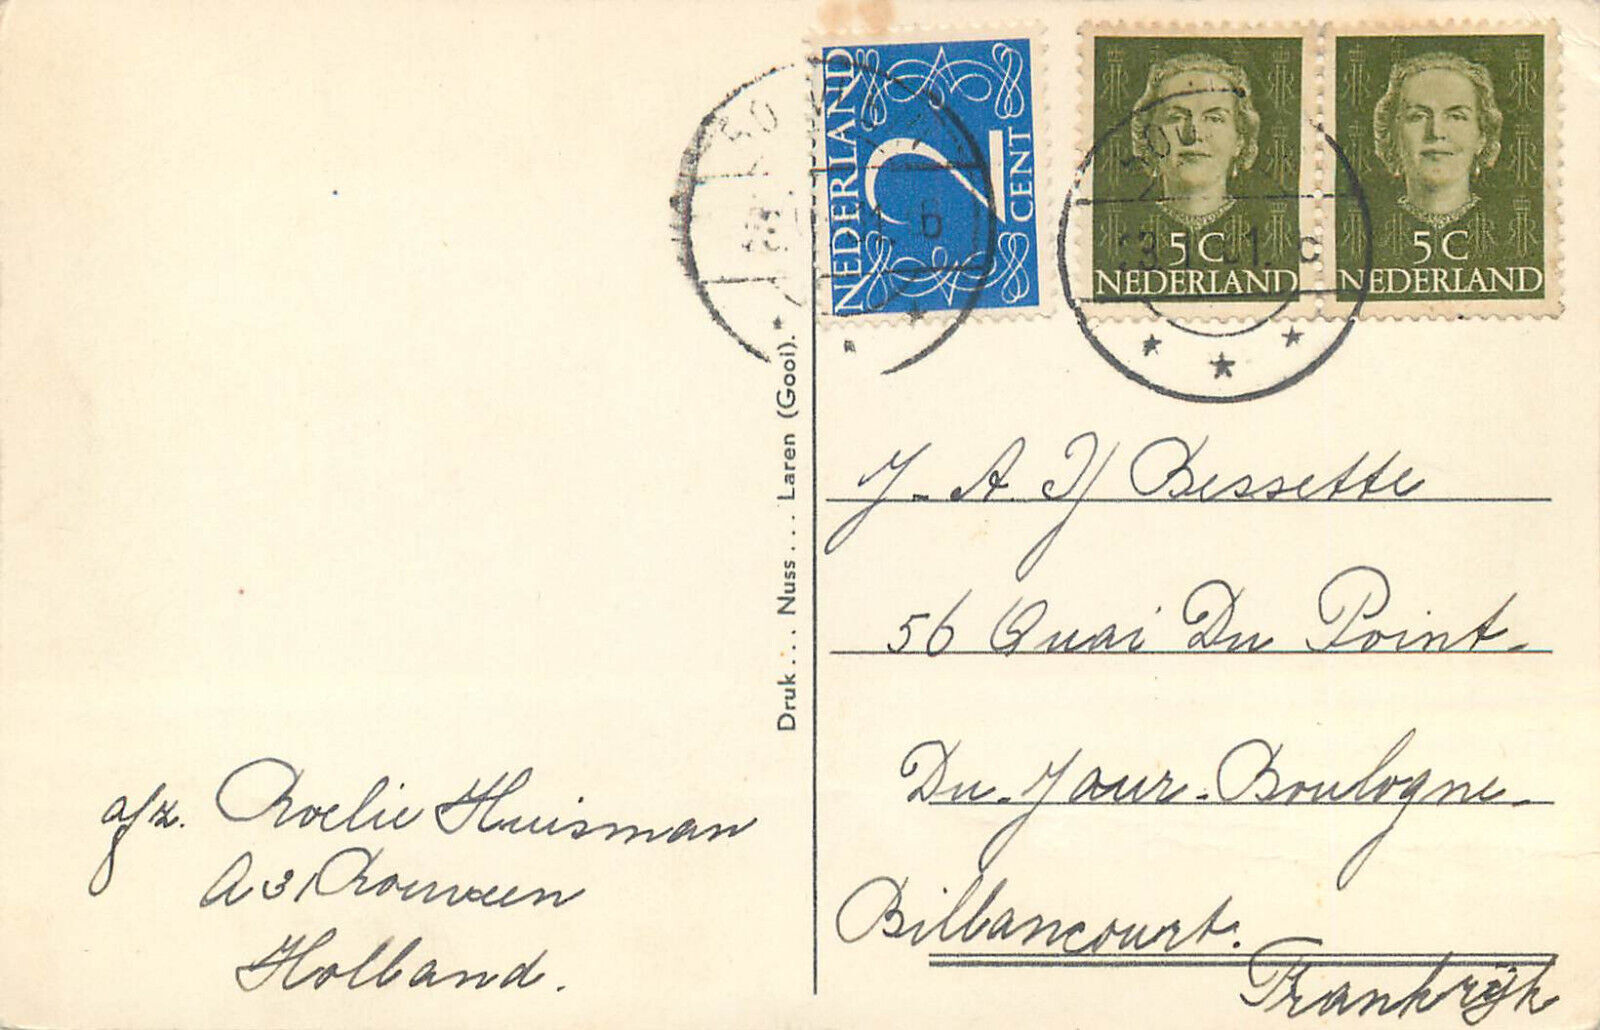 NEDERLAND
2 CENT
5 C
NEDERLAND
5 C
NEDERLAND
Druk... Nuss.... Laren (Gooi).
J. A. Y Bessette
56 Quai Du Point-
Du-Jour-Boulogne-
Billancourt.
Frankrijk
afz. Roelie Huisman
A 31 Rouveen
Holland.